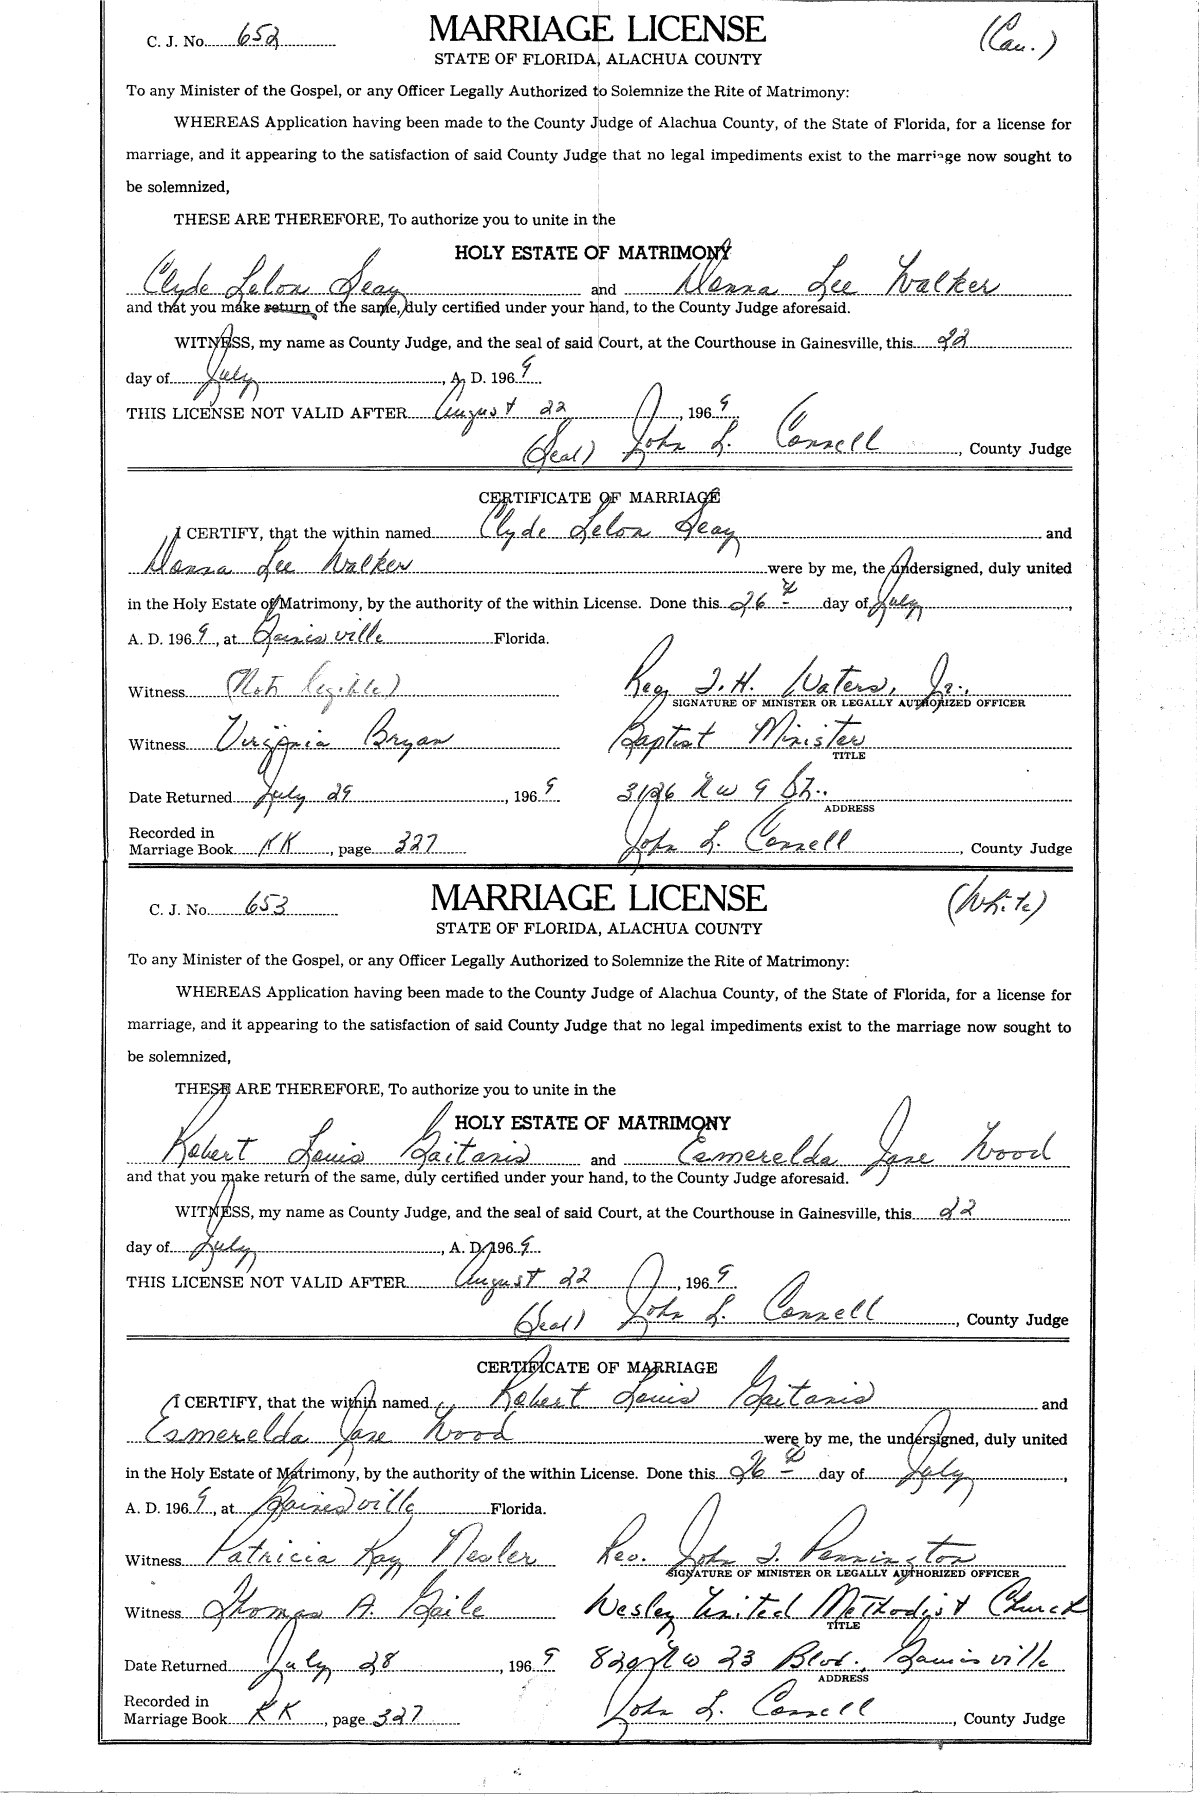 C. J. No. 652
MARRIAGE LICENSE
(Cau.)
STATE OF FLORIDA, ALACHUA COUNTY
To any Minister of the Gospel, or any Officer Legally Authorized to Solemnize the Rite of Matrimony:
WHEREAS Application having been made to the County Judge of Alachua County, of the State of Florida, for a license for
marriage, and it appearing to the satisfaction of said County Judge that no legal impediments exist to the marriage now sought to
be solemnized,
THESE ARE THEREFORE, To authorize you to unite in the
HOLY ESTATE OF MATRIMONY
Clyde Lelon Seay and Donna Lee Walker
and that you make return of the same, duly certified under your hand, to the County Judge aforesaid.
WITNESS, my name as County Judge, and the seal of said Court, at the Courthouse in Gainesville, this 22
day of July, A. D. 1969
THIS LICENSE NOT VALID AFTER August 22, 1969
(Seal) John L. Connell, County Judge
CERTIFICATE OF MARRIAGE
I CERTIFY, that the within named Clyde Lelon Seay and
Donna Lee Walker were by me, the undersigned, duly united
in the Holy Estate of Matrimony, by the authority of the within License. Done this 26 th day of July,
A. D. 1969, at Gainesville Florida.
Witness (Not legible) Reg T. H. Waters, Jr.,
SIGNATURE OF MINISTER OR LEGALLY AUTHORIZED OFFICER
Witness Virginia Bryan Baptist Minister
TITLE
Date Returned July 29, 1969 3126 N W 9 St..
ADDRESS
Recorded in
Marriage Book KK, page 327 John L. Connell, County Judge
C. J. No. 653
MARRIAGE LICENSE
(White)
STATE OF FLORIDA, ALACHUA COUNTY
To any Minister of the Gospel, or any Officer Legally Authorized to Solemnize the Rite of Matrimony:
WHEREAS Application having been made to the County Judge of Alachua County, of the State of Florida, for a license for
marriage, and it appearing to the satisfaction of said County Judge that no legal impediments exist to the marriage now sought to
be solemnized,
THESE ARE THEREFORE, To authorize you to unite in the
HOLY ESTATE OF MATRIMONY
Robert Louis Gaitanis and Esmerelda Jane Wood
and that you make return of the same, duly certified under your hand, to the County Judge aforesaid.
WITNESS, my name as County Judge, and the seal of said Court, at the Courthouse in Gainesville, this 22
day of July, A. D. 1969
THIS LICENSE NOT VALID AFTER August 22, 1969
(Seal) John L. Connell, County Judge
CERTIFICATE OF MARRIAGE
I CERTIFY, that the within named Robert Louis Gaitanis and
Esmerelda Jane Wood were by me, the undersigned, duly united
in the Holy Estate of Matrimony, by the authority of the within License. Done this 26 th day of July,
A. D. 1969, at Gainesville Florida.
Witness Patricia Kay Nesler Rev. John J. Pennington
SIGNATURE OF MINISTER OR LEGALLY AUTHORIZED OFFICER
Witness Thomas A. Gaile Wesley United Methodist Church
TITLE
Date Returned July 28, 1969 820 N W 23 Blvd., Gainesville
ADDRESS
Recorded in
Marriage Book KK, page 327 John L. Connell, County Judge